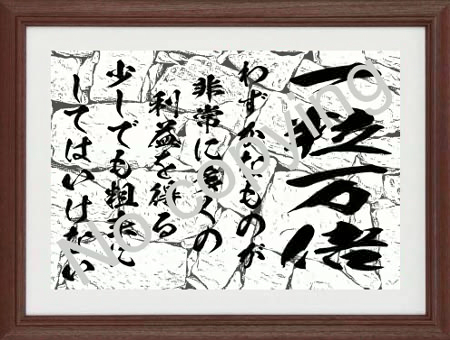 一粒万倍
わずかなものが
非常に多くの
利益を得る
少しでも粗末に
してはいけない
No copying